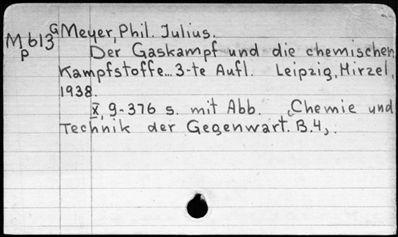 M613 G Meyer, Phil. Julius.
p Der Gaskampf und die chemischen
Kampfstoffe... 3-te Aufl. Leipzig, Hirzel,
1938.
X, 9-376 s. mit Abb. „Chemie und
Technik der Gegenwart. B.4„.